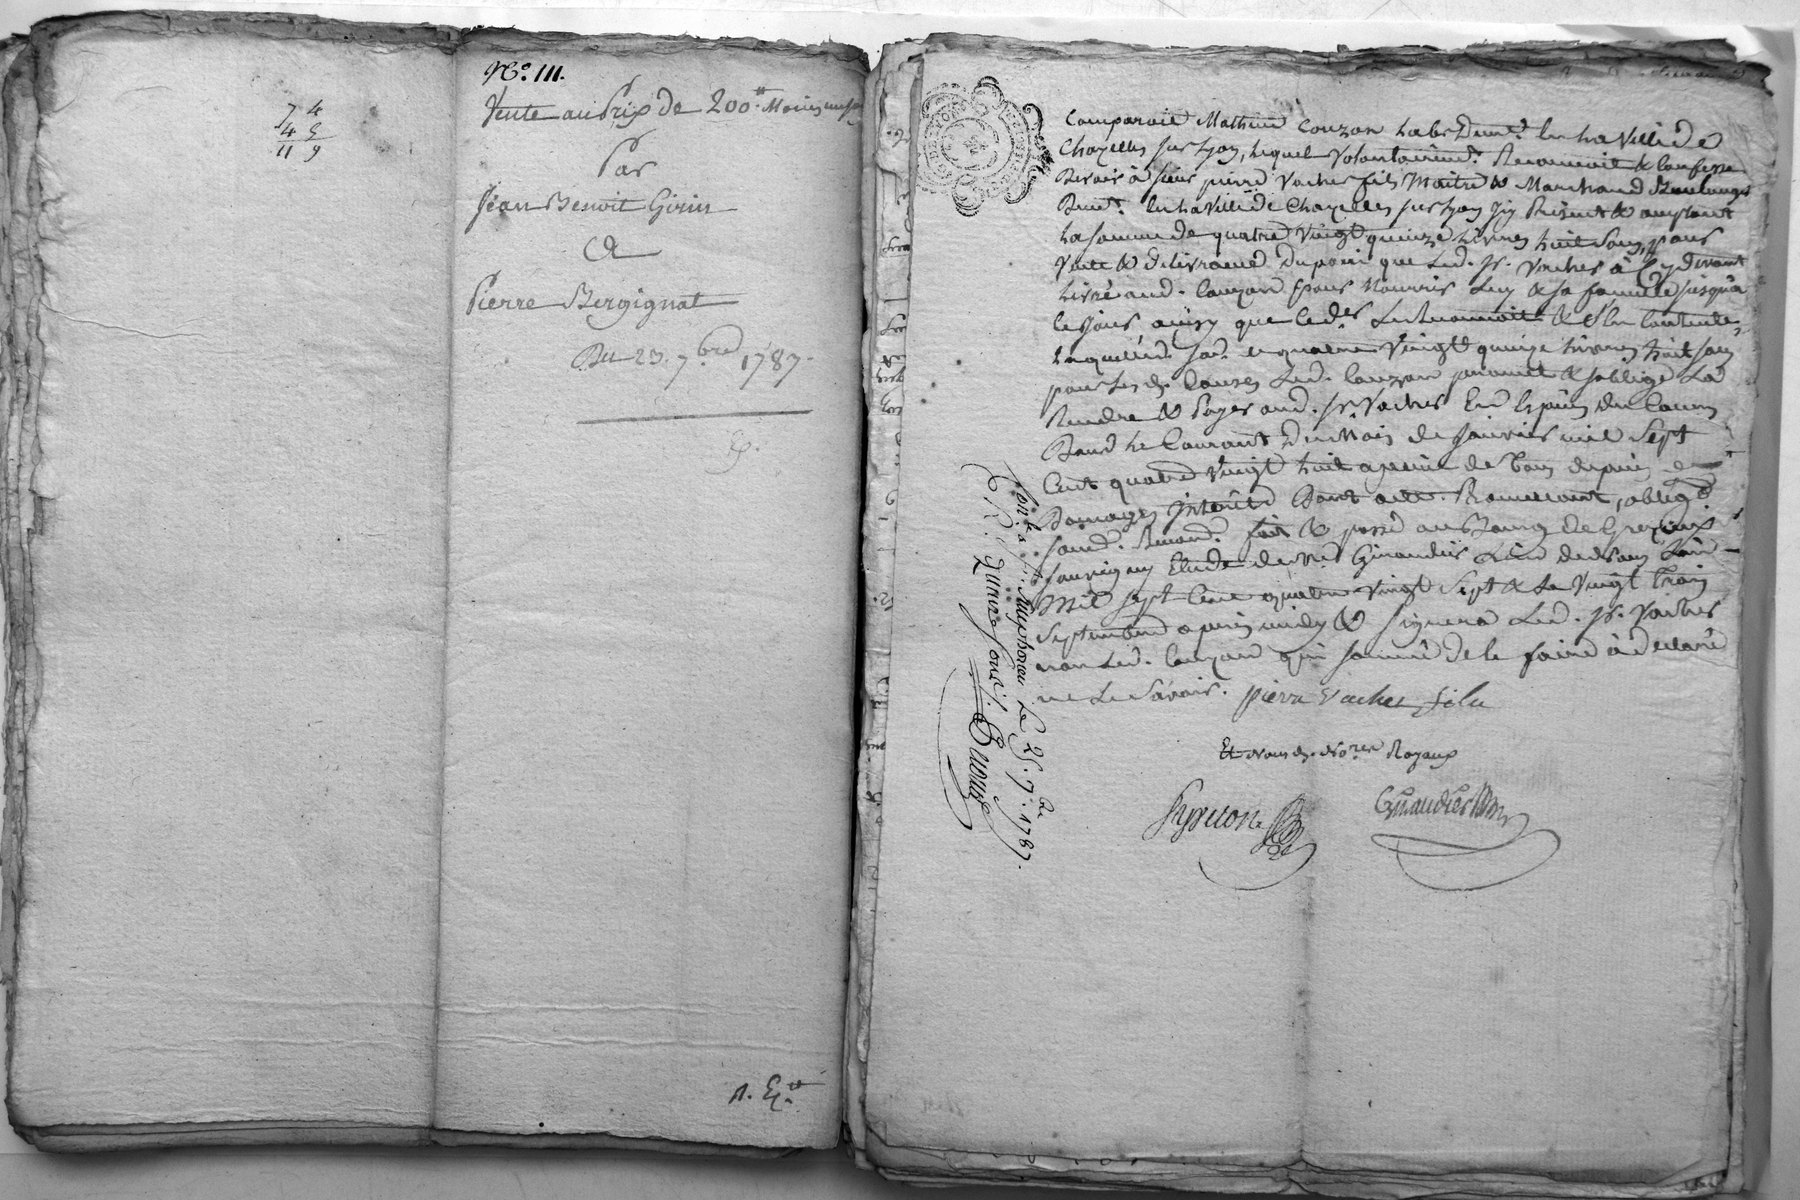 74
45
119
No. 111.
Vente au Prix de 200tt Moins un sol
Par
Jean Benoit Girin
A
Pierre Bergignat
Du 23. 7bre 1787.
1. Ex.
Comparait Mathieu Couzon habt. en la Ville de
Chazelles sur Lyon, lequel volontairemt. Reconnoit & Confesse
Devoir à sieur pierre Vacher fils Maitre & Marchand Boulanger
Demt. en la Ville de Chazelles sur Lyon icy Présent & acceptant
la somme de quatre vingt quinze Livres huit sous, pour
Vente & delivrance du pain que Led. Sr. Vacher a cy devant
Livré aud. Couzon pour Nourrir Luy & sa famille jusqu'à
ce jour ainsy que led. Le Reconnoit & s'en Contente,
Laquelle d. so. de quatre vingt quinze Livres huit sous
pour les d. Causes Led. Couzon promet & s'oblige La
Rendre & Payer aud. Sr. Vacher En Espèces du Cours
Dans le Courant du Mois de Janvier mil Sept
Cent quatre vingt huit a peine de tous depens
Domages Intérêts Dont acte. Promettant, oblige.
soumt. Renonct. fait & passé au Bourg de Grezieux
Souvigny Etude de Me. Giraudier L'un de Nous L'an
Mil Sept Cent quatre vingt Sept & Le Vingt trois
Septembre après midy & signera Led. Sr. Vacher
non Led. Couzon qui sommé de le faire à déclaré
ne Le Savoir. pierre vacher fils
Et Nous d. Nores. Royaux
Giraudier
Contlé. à St. Simphorien Le 25. 7bre. 1787.
R. quinze sous